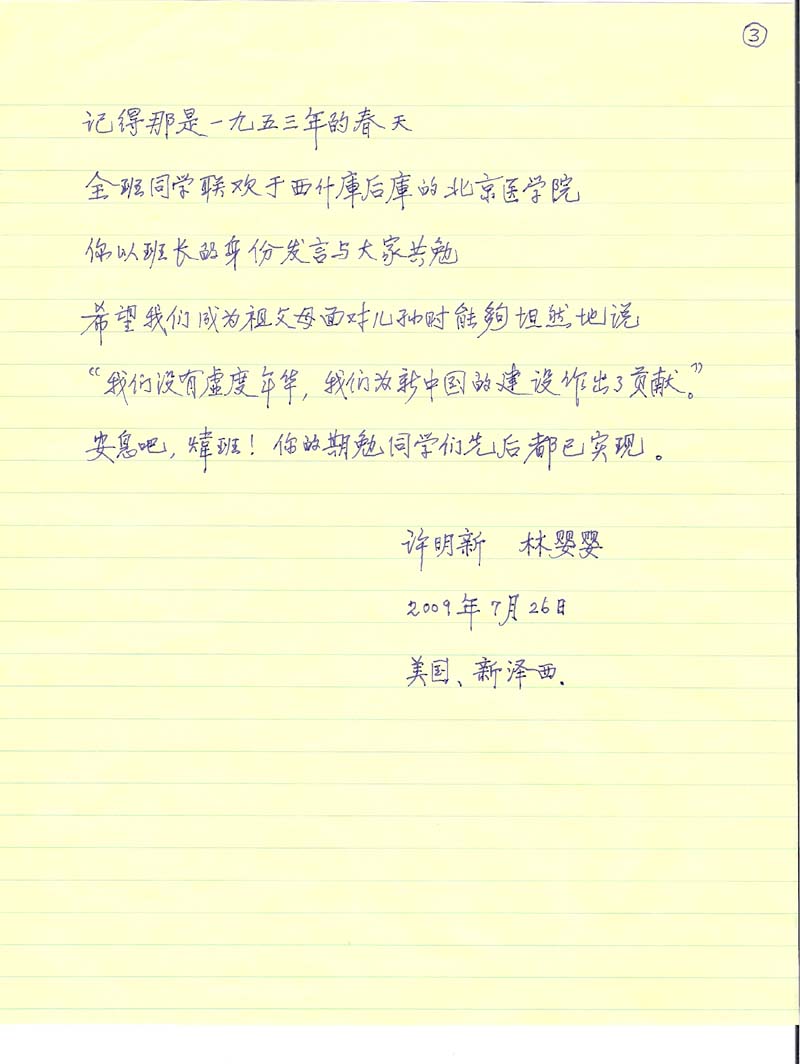 ③
记得那是一九五三年的春天
全班同学联欢于西什庫后庫的北京医学院
你以班长的身份发言与大家共勉
希望我们成为祖父母面对儿孙时能夠坦然地说
“我们没有虚度年华，我们为新中国的建设作出了贡献。”
安息吧，煒班！你的期勉同学们先后都已实现。
许明新 林婴婴
2009年7月26日
美国、新泽西.